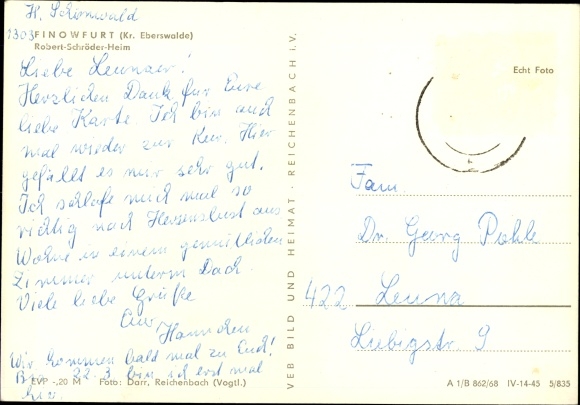 H. Schönwald
1303 FINOWFURT (Kr. Eberswalde)
Robert-Schröder-Heim
Liebe Leunaer!
Herzlichen Dank für Eure
liebe Karte. Ich bin auch
mal wieder zur Kur. Hier
gefällt es mir sehr gut.
Ich schlafe mich mal so
richtig nach Herzenslust aus
Wohne in einem gemütlichen
Zimmer unterm Dach.
Viele liebe Grüße
Eur
Hannchen
Wir kommen bald mal zu Euch!
Bis 22.3. bin ich erst mal
hier.
EVP -,20 M Foto: Darr, Reichenbach (Vogtl.)
VEB BILD UND HEIMAT · REICHENBACH i.V.
Echt Foto
Fam
Dr. Georg Pohle
422 Leuna
Liebigstr. 9
A 1/B 862/68 IV-14-45 5/835